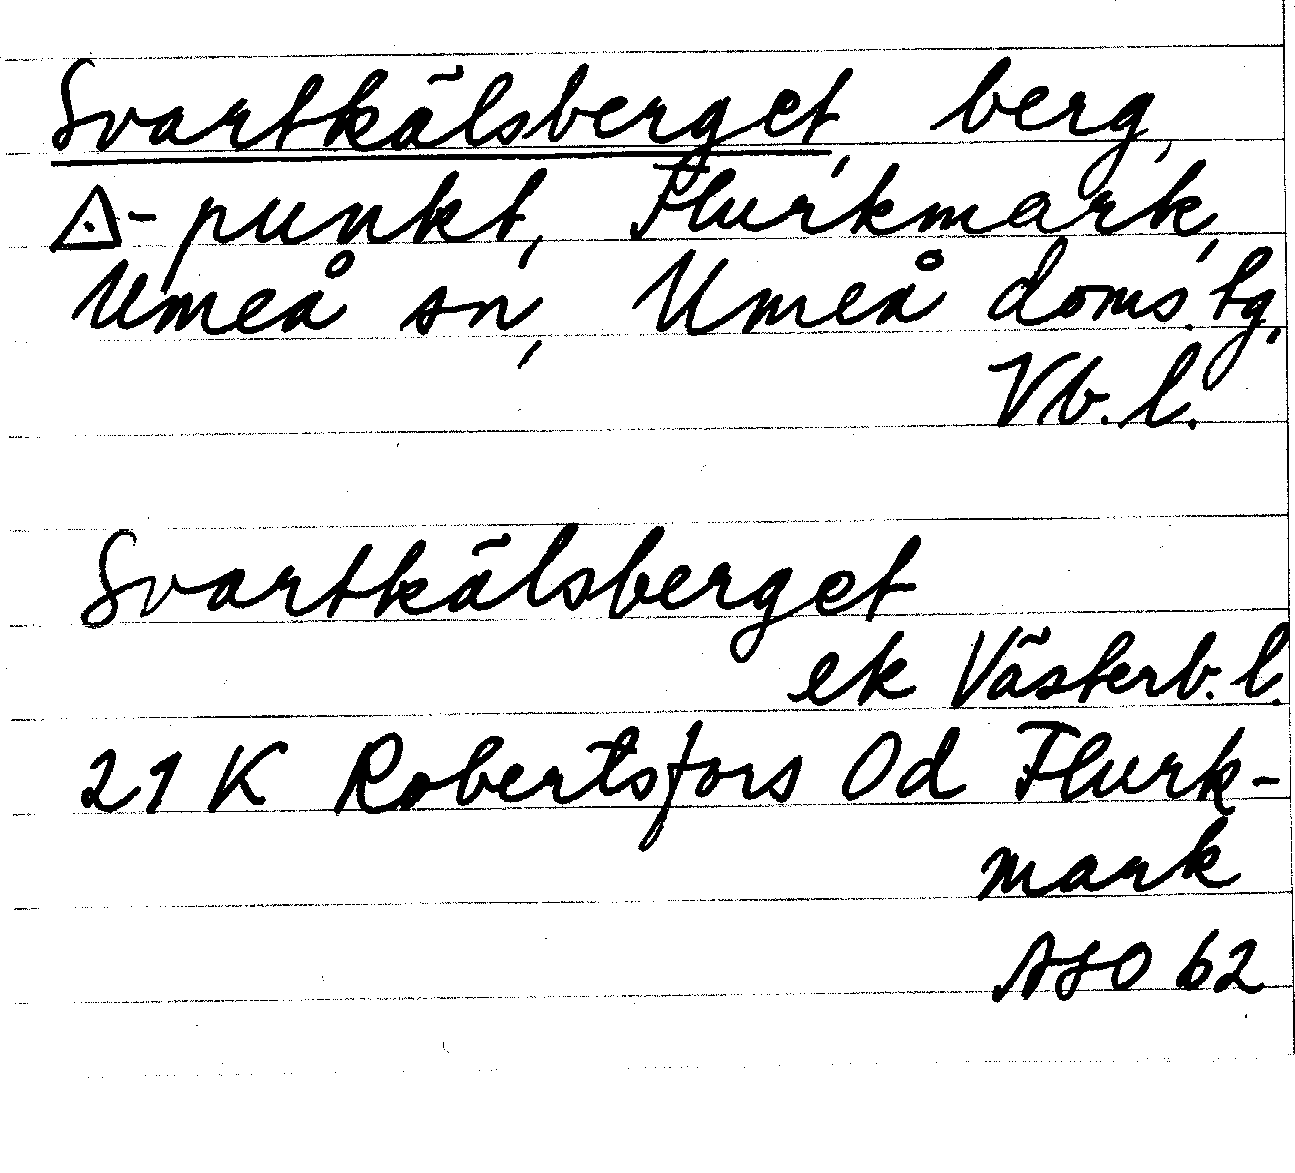 Svartkälsberget, berg,
△-punkt, Flurkmark,
Umeå sn, Umeå doms.tg,
Vb.l.
Svartkälsberget
ek Västerb.l.
21 K Robertsfors 0d Flurk-
mark
ASO 62